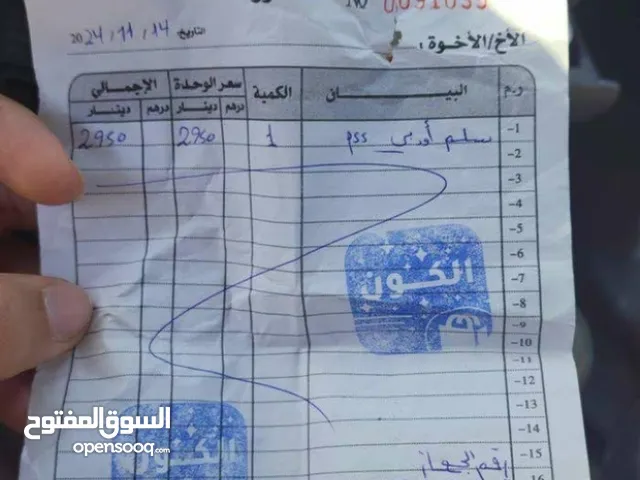 № 0091055
التاريخ 14 / 11 / 2024
الأخ/الأخوة :
ر.م البيـــــان الكمية سعر الوحدة الإجمالي
درهم دينار درهم دينار
1- سلم أوربي PSS 1 2950 2950
2-
3-
4-
5-
6-
7-
8-
9-
10-
11-
12-
13-
14-
15-
16
رقم الجهاز
الكون
الكون
السوق المفتوح
opensooq.com